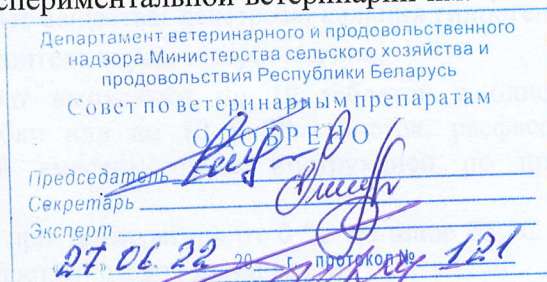 экспериментальной ветеринарии им.
Департамент ветеринарного и продовольственного
надзора Министерства сельского хозяйства и
продовольствия Республики Беларусь
Совет по ветеринарным препаратам
ОДОБРЕНО
Председатель
Секретарь
Эксперт
27 » 06. 22 20 г. протокол № 121